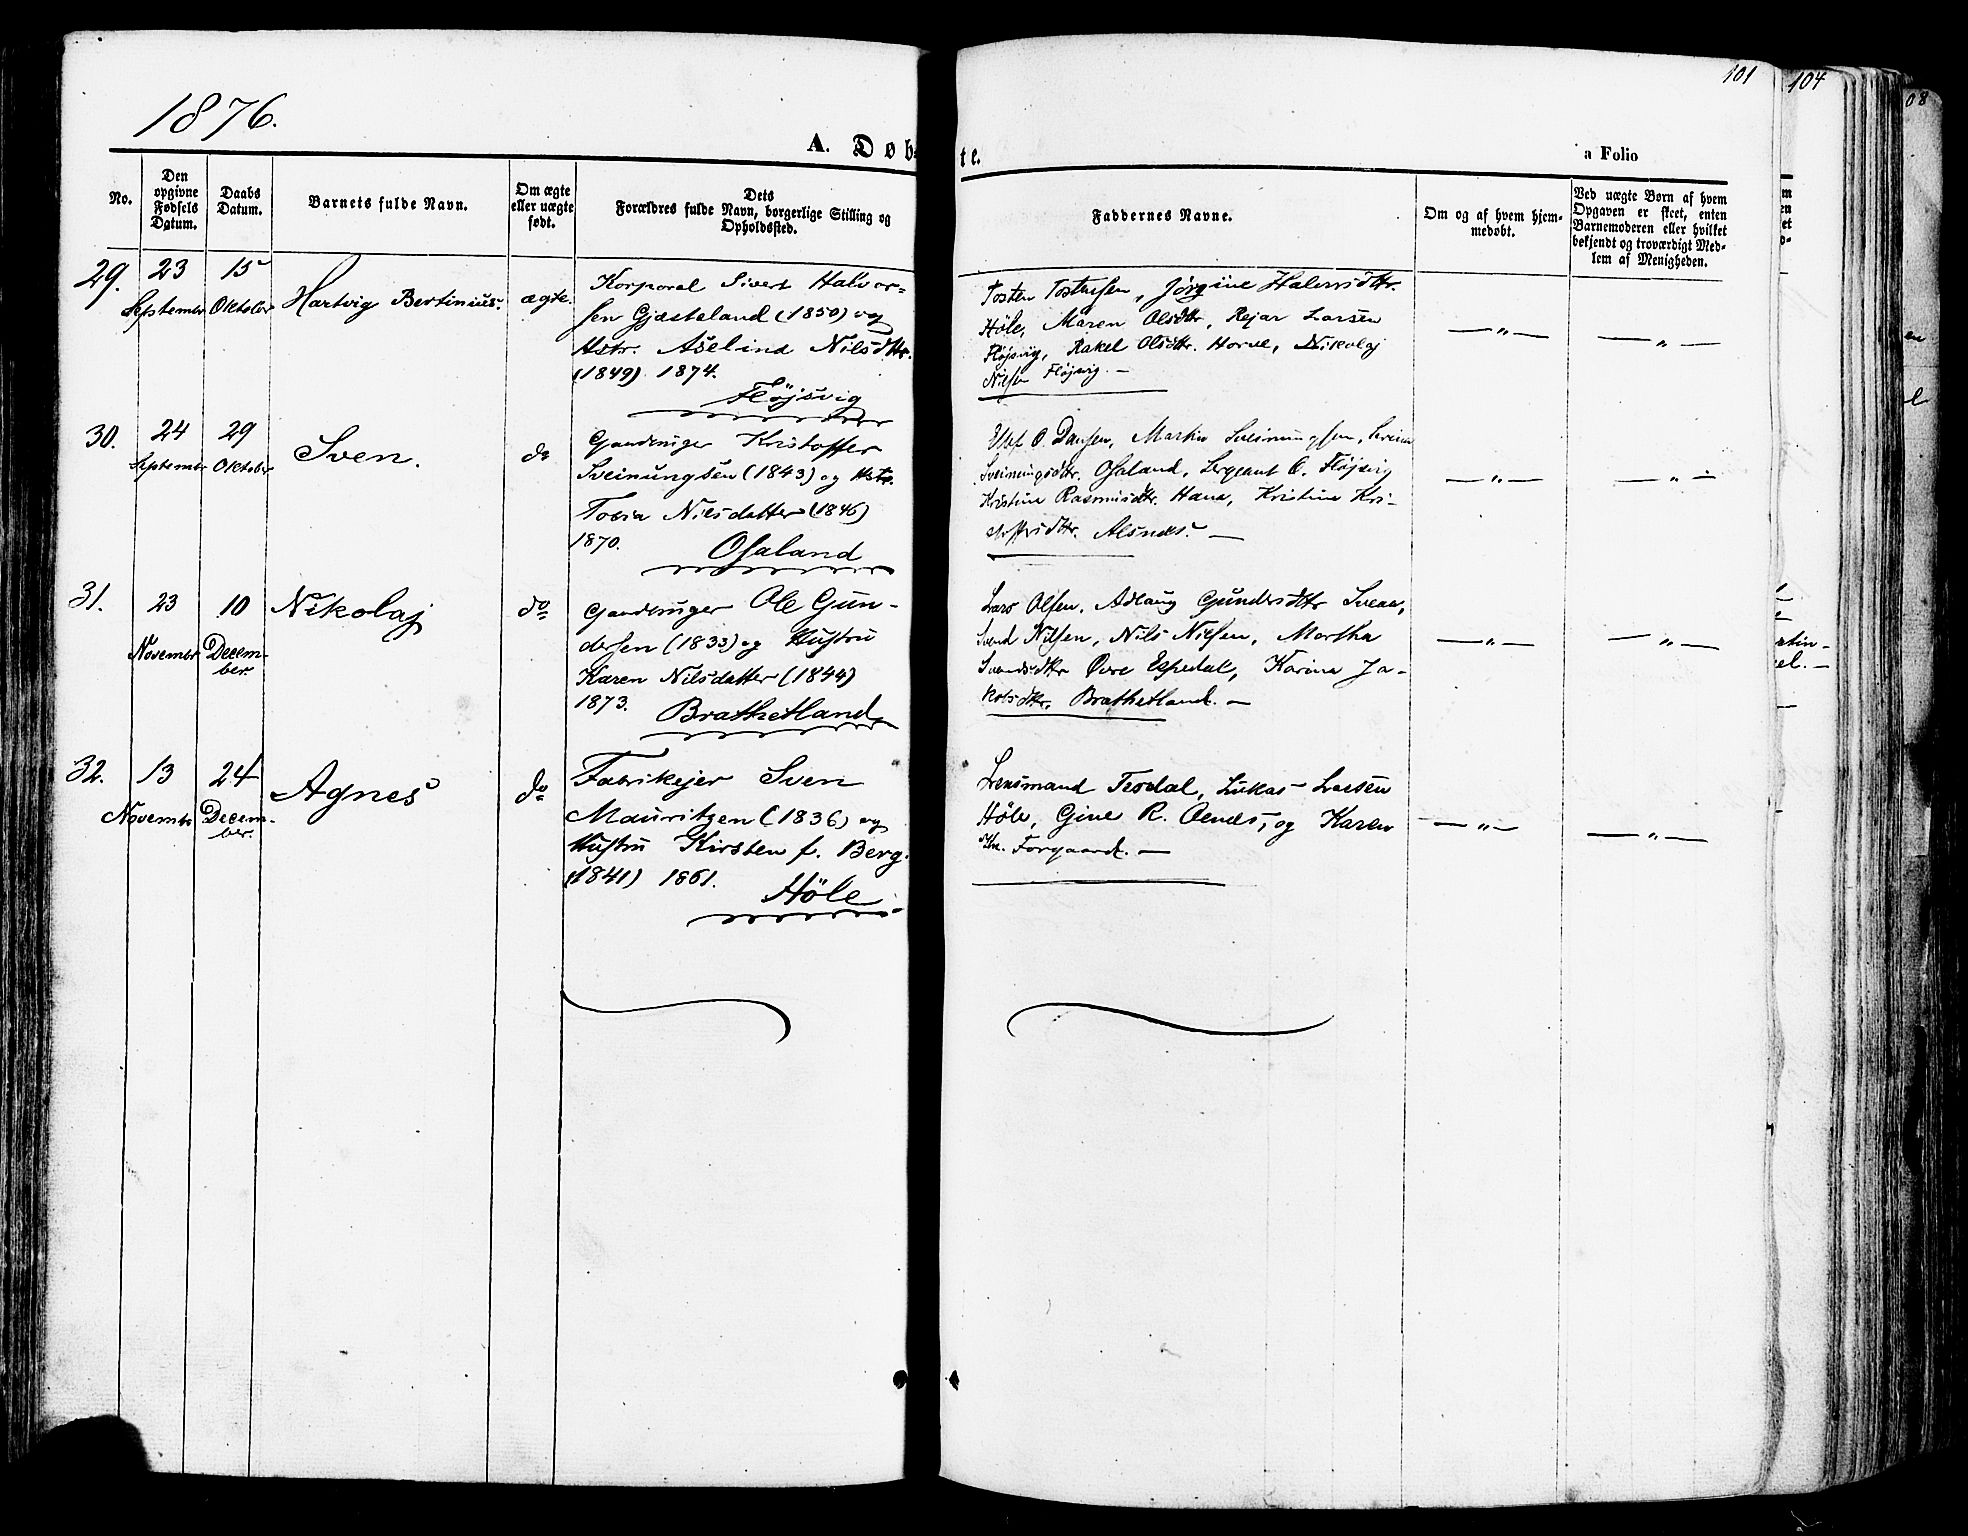 1876.
A. Døb
te.
a Folio
101
104
08
No.
Den opgivne Fødsels Datum.
Daabs Datum.
Barnets fulde Navn.
Om ægte eller uægte født.
Dets Forældres fulde Navn, borgerlige Stilling og Opholdssted.
Faddernes Navne.
Om og af hvem hjemmedøbt.
Ved uægte Børn af hvem Opgaven er skeet, enten Barnemoderen eller hvilket bekjendt og troværdigt Medlem af Menigheden.
29. 23 September 15 Oktober Hartvig Bertinius. ægte.
Korporal Sivert Halvor-
sen Gjæsteland (1850) og
Hstr. Aselind Nilsdtr.
(1849) 1874.
Fløjsvig
Tosten Tostensen, Jørgine Halvorsdtr.
Höle, Maren Olsdtr, Rejar Larsen
Fløjsvig, Rakel Olsdtr. Horve, Nikolaj
Nilsen Fløjsvig. —
— „ —
— „ —
30. 24 September 29 Oktober Sven. do
Gaardbruger Kristoffer
Sveinungsen (1843) og Hstr.
Tobia Nilsdatter (1846)
1870.
Osaland
O. Dansen, Martin Sveinungsen,
Sveinungsdtr. Osaland, Sergeant O. Fløjsvig
Kristine Rasmusdtr. Hana, Kristine Kri-
stoffersdtr. Alsnes. —
— „ —
— „ —
31. 23 November 10 December. Nikolaj do
Gaardbruger Ole Gun-
dersen (1833) og Hustru
Karen Nilsdatter (1844)
1873.
Brathetland
Lars Olsen, Adlaug Gundersdtr
Svend Nilsen, Nils Nilsen, Martha
Svendsdtr Øvre Espedal, Karina Ja-
kobsdtr. Brathetland. —
— „ —
— „ —
32. 13 November 24 December. Agnes do
Fabrikejer Sven
Mauritzen (1836) og
Hustru Kirsten f. Berg.
(1841) 1861.
Höle
Lensmand Tjodal, Lukas Larsen
Höle, Gine R. Oenes, og Karen
Forgaard. —
— „ —
— „ —